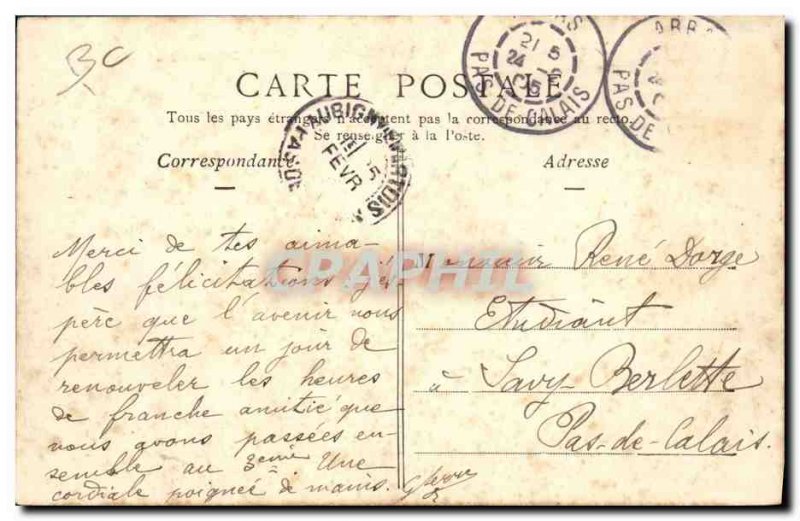 BC
CARTE POSTALE
Tous les pays étrangers n'acceptent pas la correspondance au recto.
Se renseigner à la Poste.
Correspondance
Adresse
PAS DE CALAIS
21 5
24
ARRA
PAS DE
AUBIGNY-EN-ARTOIS
FEVR
Merci de tes aima-
bles félicitations. J'es-
père que l'avenir nous
permettra un jour de
renouveler les heures
de franche amitié que
nous avons passées en-
semble au 3eme. Une
cordiale poignée de mains.
Monsieur René Dorge
Etudiant
à Savy-Berlette
Pas-de-Calais.
CPAPHIL